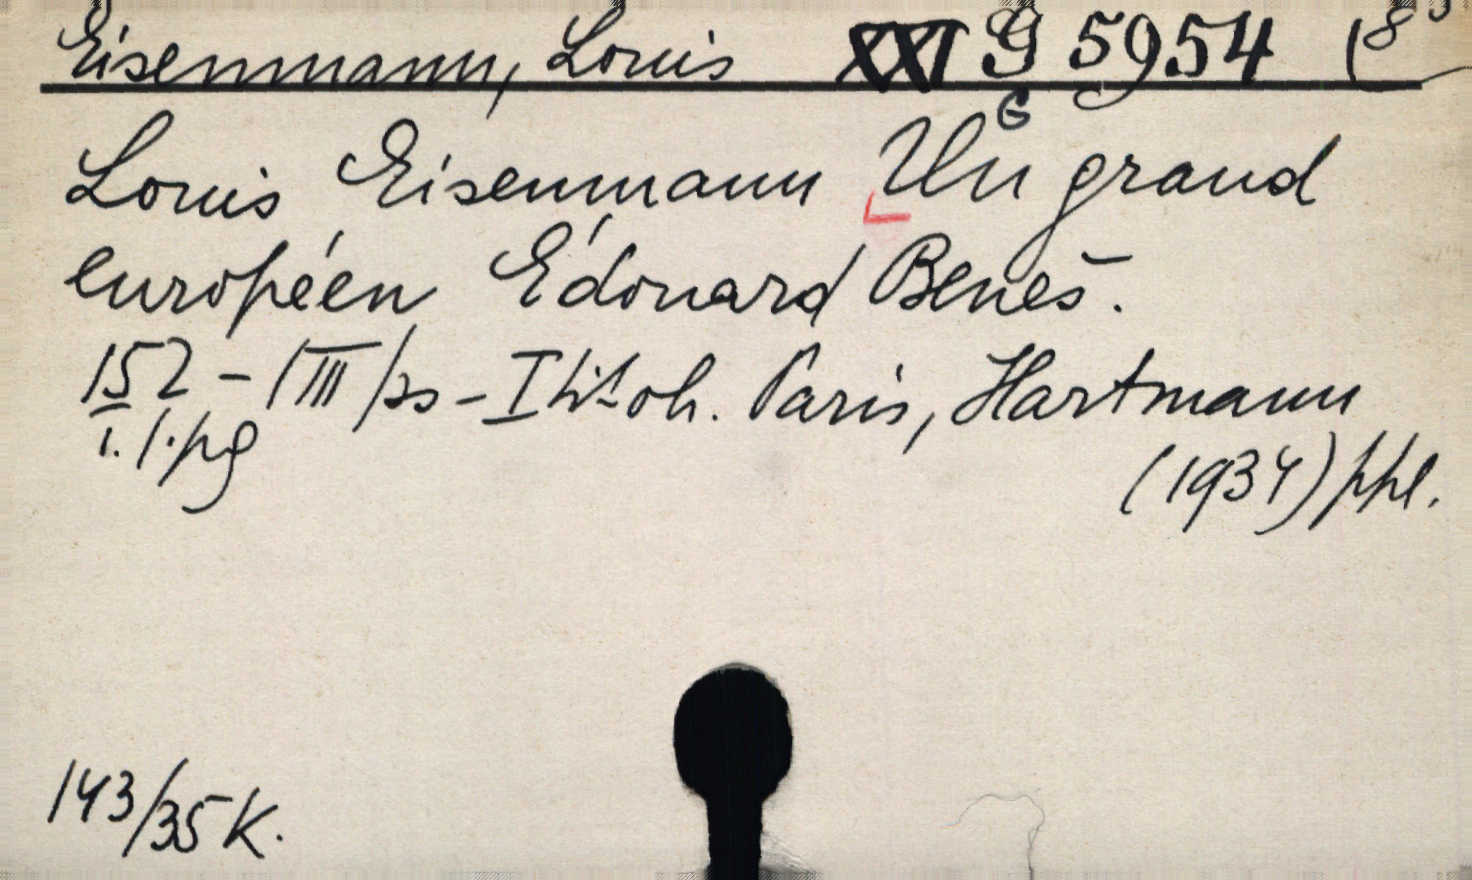 Eisenmann, Louis XXI G 5954 (8°
G
Louis Eisenmann Un grand
européen Édouard Beneš.
152 – (III) s – I tit. ob. Paris, Hartmann
1. l. pg
(1934) ppl.
143/35 K.